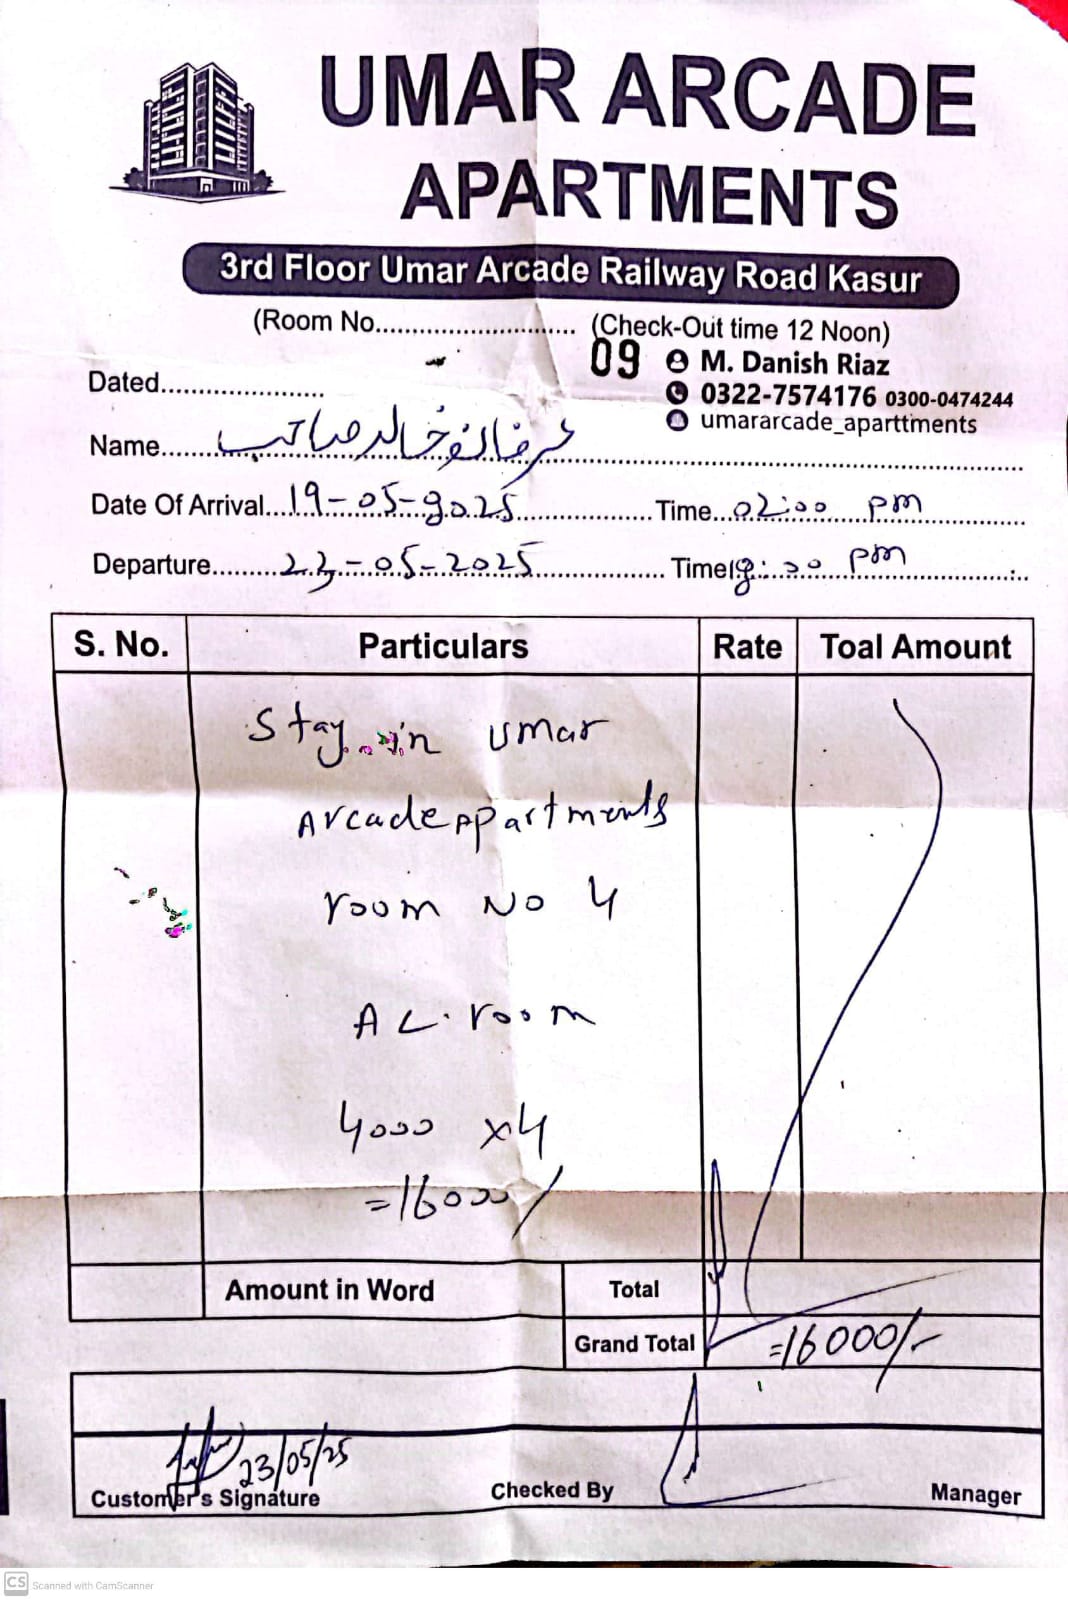 UMAR ARCADE
APARTMENTS
3rd Floor Umar Arcade Railway Road Kasur
(Room No............................. (Check-Out time 12 Noon)
09 M. Danish Riaz
Dated........................
0322-7574176 0300-0474244
umararcade_aparttments
Name....... عرفان خالد صاحب
Date Of Arrival....19-05-2025.................Time...02:00 pm
Departure.........23-05-2025................ Time 12:00 pm
S. No. Particulars Rate Toal Amount
Stay in Umar
Arcade Appartments
room No 4
AC. room
4000 x4
=16000/
Amount in Word Total
Grand Total =16000/-
23/05/25
Customer's Signature Checked By Manager
CS Scanned with CamScanner